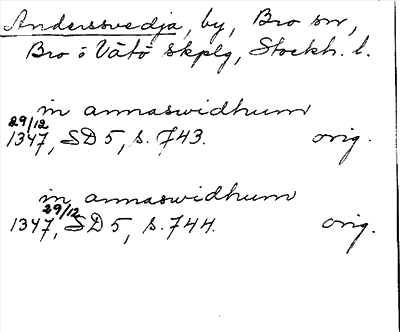 Andersvedja, by, Bro sn,
Bro o Vätö skplg, Stockh. l.
in annaswidhum
29/12
1347, SD 5, s. 743. orig.
in annaswidhum
29/12
1347, SD 5, s. 744. orig.